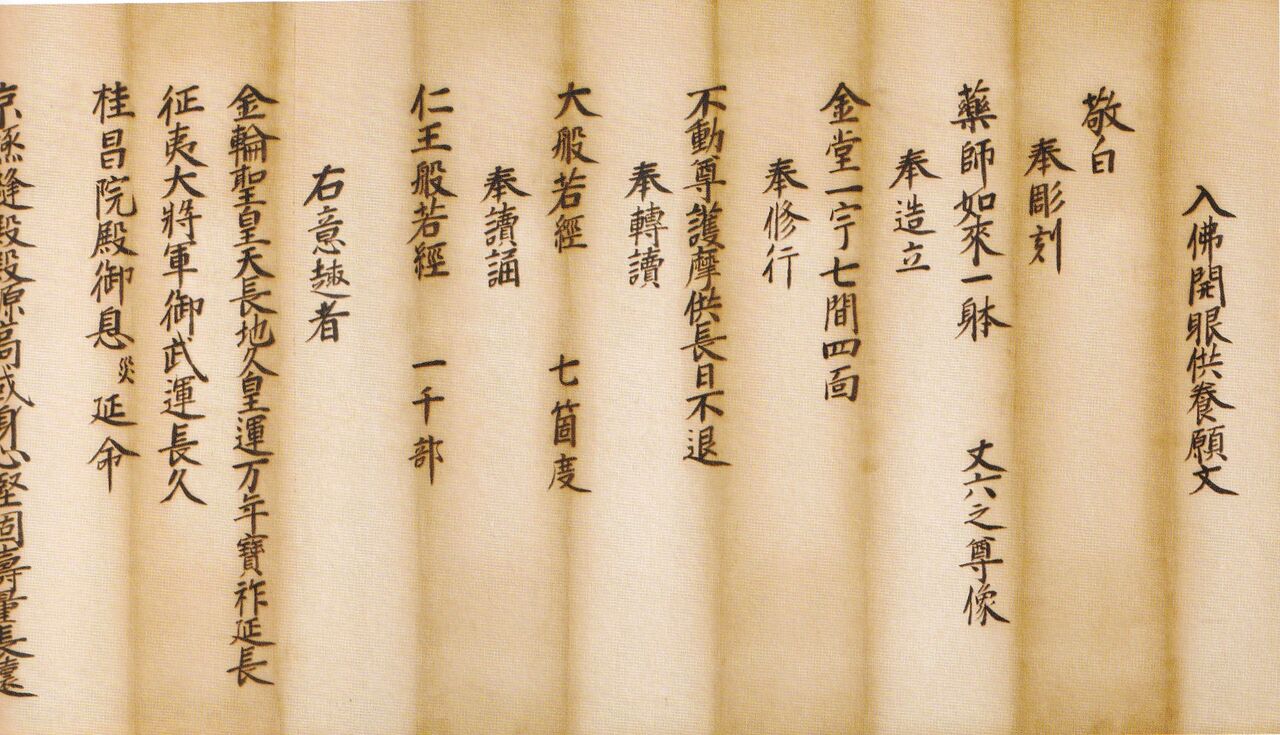 入佛開眼供養願文
敬白
奉彫刻
藥師如來一躰 丈六之尊像
奉造立
金堂一宇七間四面
奉修行
不動尊護摩供長日不退
奉轉讀
大般若經 七箇度
奉讀誦
仁王般若經 一千部
右意趣者
金輪聖皇天長地久皇運万年寶祚延長
征夷大將軍御武運長久
桂昌院殿御息災延命
京極縫殿殿源高或身心堅固壽量長遠